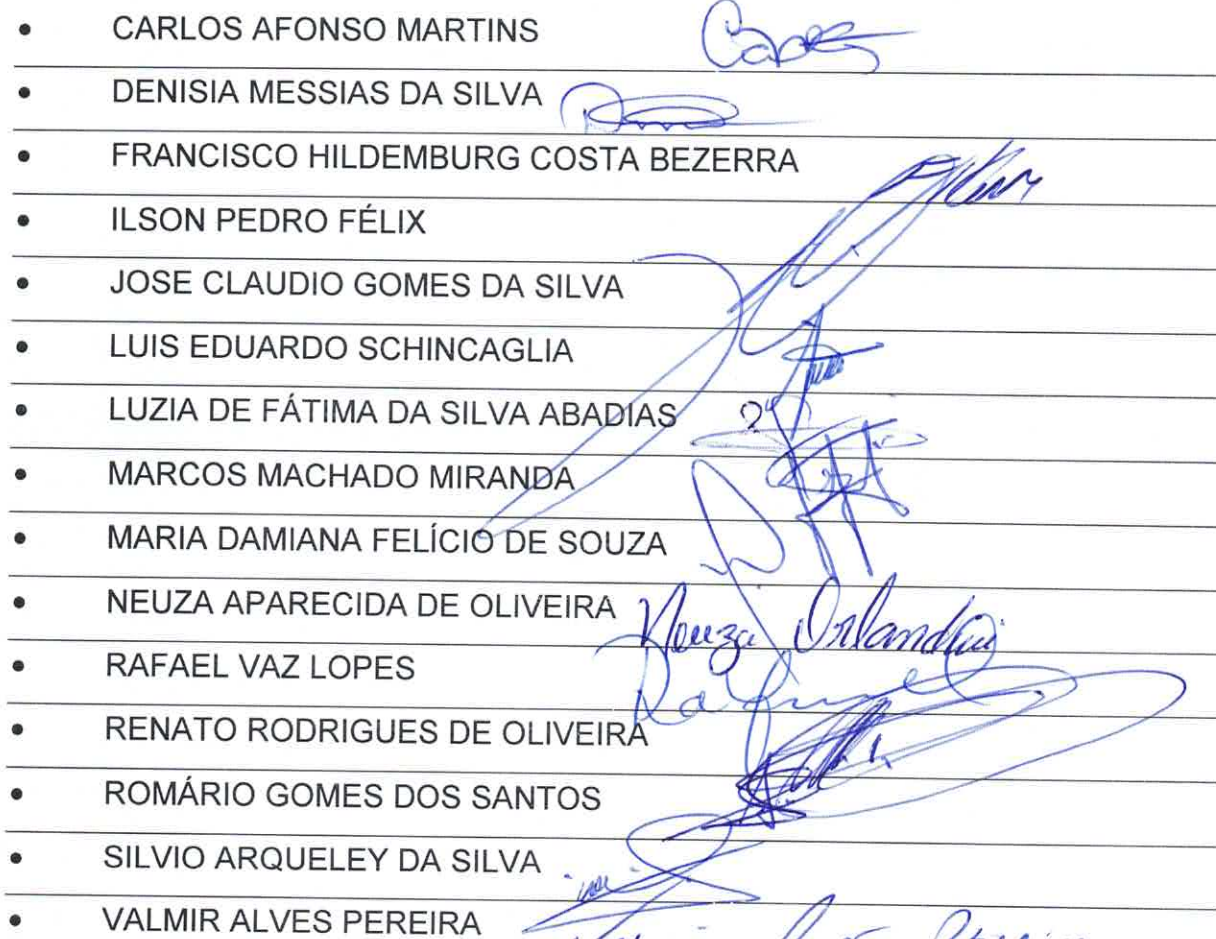 • CARLOS AFONSO MARTINS
• DENISIA MESSIAS DA SILVA
• FRANCISCO HILDEMBURG COSTA BEZERRA
• ILSON PEDRO FÉLIX
• JOSE CLAUDIO GOMES DA SILVA
• LUIS EDUARDO SCHINCAGLIA
• LUZIA DE FÁTIMA DA SILVA ABADIAS
• MARCOS MACHADO MIRANDA
• MARIA DAMIANA FELÍCIO DE SOUZA
• NEUZA APARECIDA DE OLIVEIRA Neuza
• RAFAEL VAZ LOPES Rafael
• RENATO RODRIGUES DE OLIVEIRA
• ROMÁRIO GOMES DOS SANTOS
• SILVIO ARQUELEY DA SILVA
• VALMIR ALVES PEREIRA